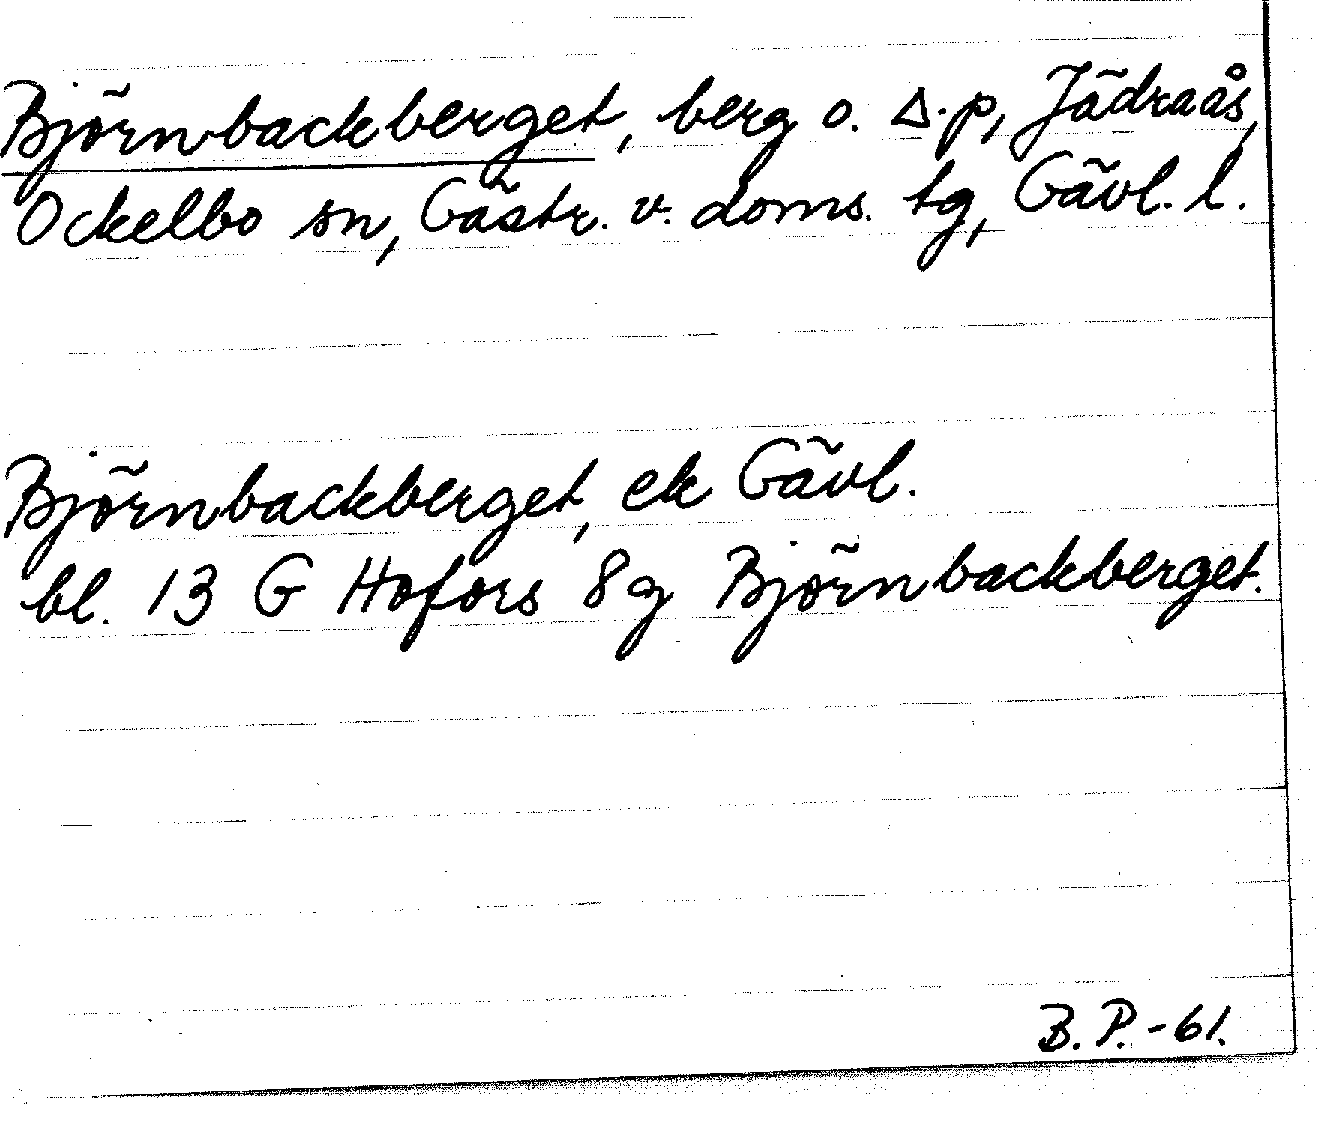 Björnbackberget, berg o. Δ.p, Jädraås,
Ockelbo sn, Gästr. v. doms. tg, Gävl. l.
Björnbackberget, ek Gävl.
bl. 13 G Hofors 8g Björnbackberget.
B. P. -61.